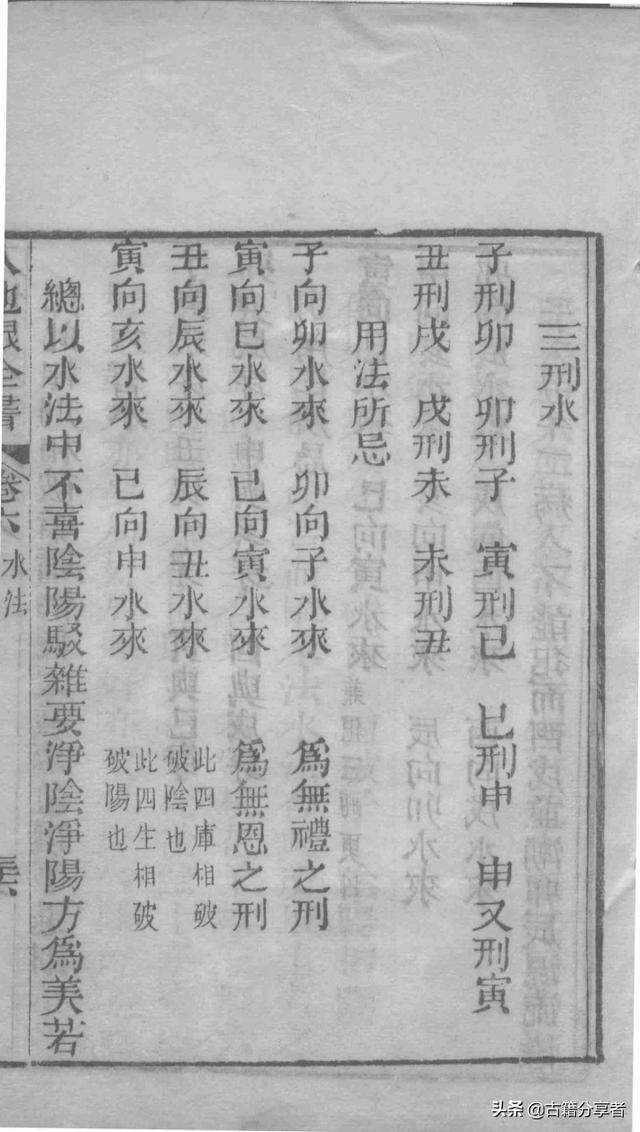 三刑水
子刑卯 卯刑子 寅刑巳 巳刑申 申又刑寅
丑刑戌 戌刑未 未刑丑
用法所忌
子向卯水來 卯向子水來 為無禮之刑
寅向巳水來 巳向寅水來 為無恩之刑
丑向辰水來 辰向丑水來 此四庫相破
破陰也
寅向亥水來 巳向申水來 此四生相破
破陽也
總以水法中不喜陰陽駁雜要淨陰淨陽方為美若
地眼全書 卷六 水法
头条 @古籍分享者